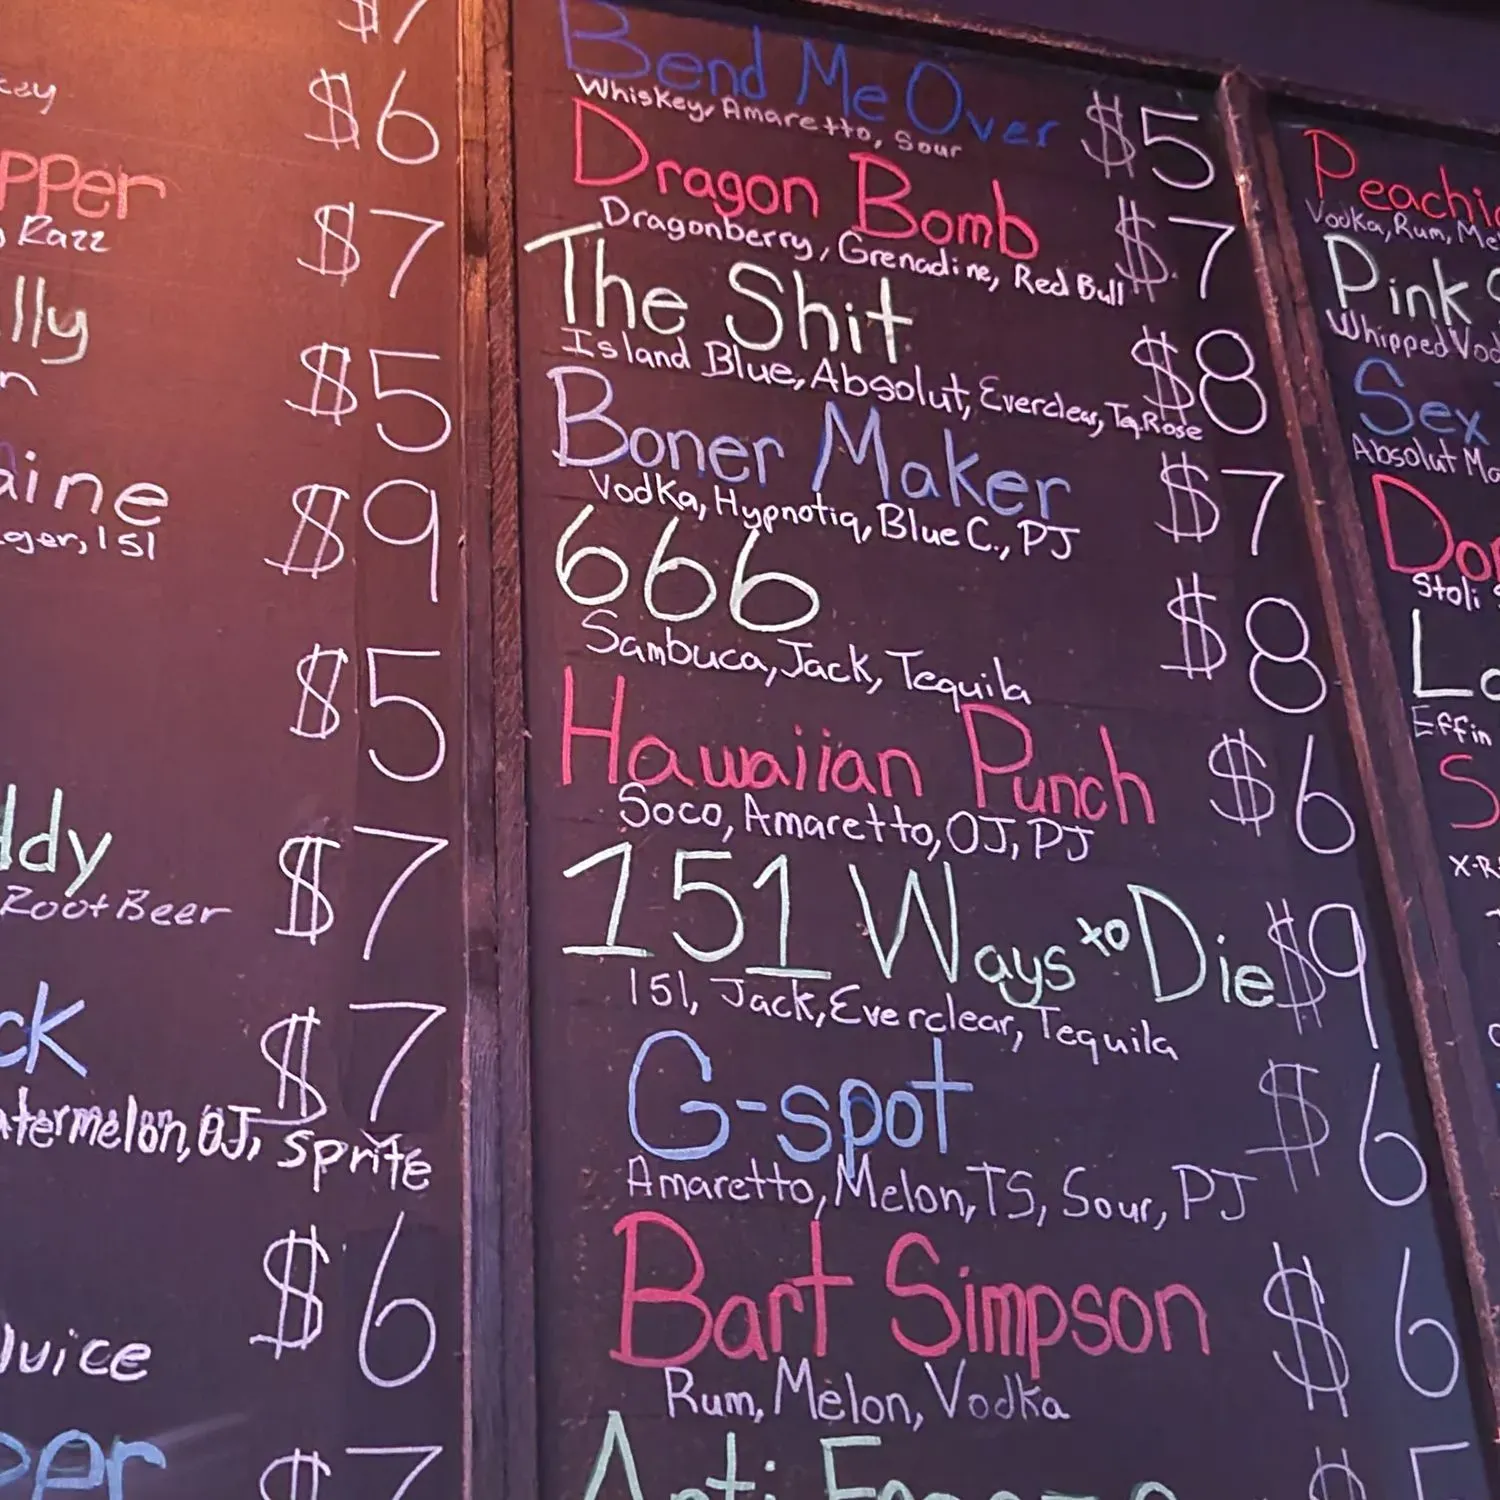 $7
$6
pper
Razz
$7
lly
$5
aine
ger, 151
$9
$5
ddy
Root Beer
$7
ck
$7
atermelon, OJ, Sprite
$6
Juice
per
$7
Bend Me Over $5
Whiskey, Amaretto, Sour
Dragon Bomb $7
Dragonberry, Grenadine, Red Bull
The Shit $8
Island Blue, Absolut, Everclear, Teq.Rose
Boner Maker $7
Vodka, Hypnotiq, Blue C., PJ
666 $8
Sambuca, Jack, Tequila
Hawaiian Punch $6
Soco, Amaretto, OJ, PJ
151 Ways to Die $9
151, Jack, Everclear, Tequila
G-spot $6
Amaretto, Melon, TS, Sour, PJ
Bart Simpson $6
Rum, Melon, Vodka
Peachi
Vodka, Rum, Me
Pink
Whipped Vod
Sex
Absolut Ma
Don
Stoli
Lo
Effin
S
X-R